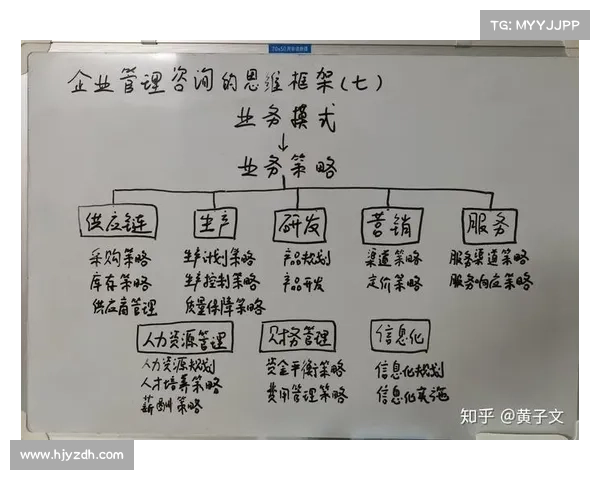 TG: MYYJJPP
70x50
企业管理咨询的思维框架(七)
业务模式
↓
业务策略
供应链 生产 研发 营销 服务
采购策略 生产计划策略 产品规划 渠道策略 服务渠道策略
库存策略 生产控制策略 产品开发 定价策略 服务响应策略
供应商管理 质量保障策略
人力资源管理 财务管理 信息化
人力资源规划 资金平衡策略 信息化规划
人才培养策略 费用管理策略 信息化实施
薪酬策略
知乎 @黄子文
www.hjyzdh.com